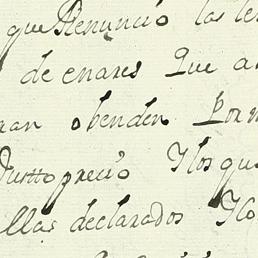 que Renunció las le
de enares Que a
ran obenden Por
Justto precio Ylos qu
llas declarados Ylo